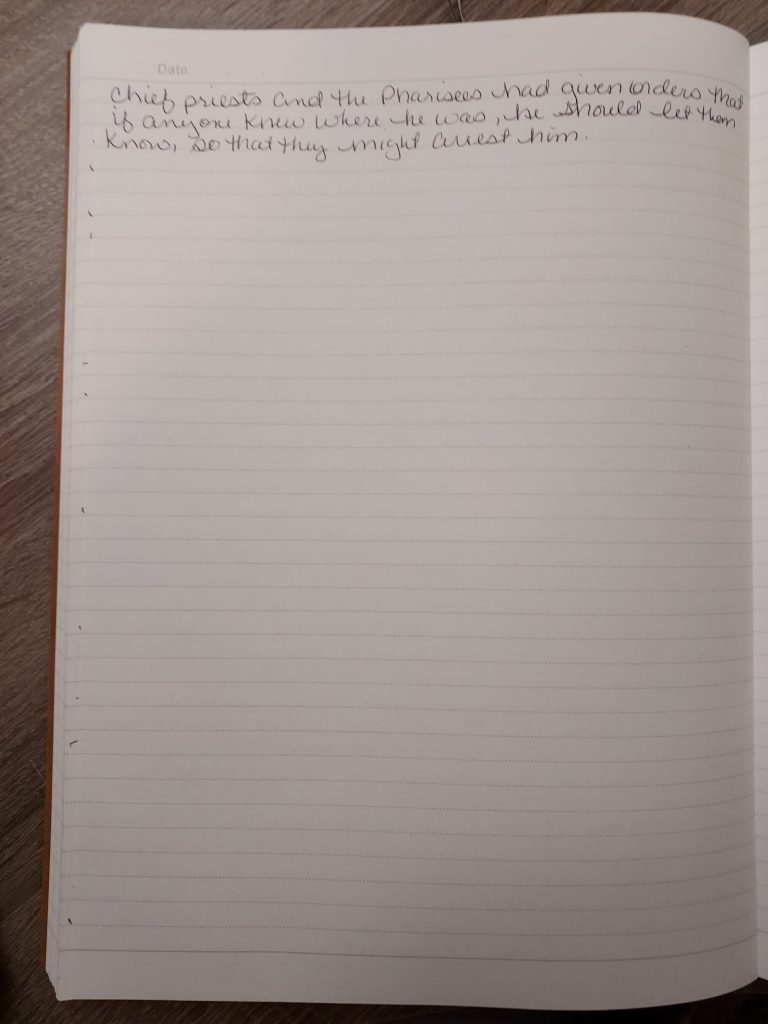 Date:
chief priests and the Pharisees had given orders that
if anyone knew where he was, he should let them
know, so that they might arrest him.